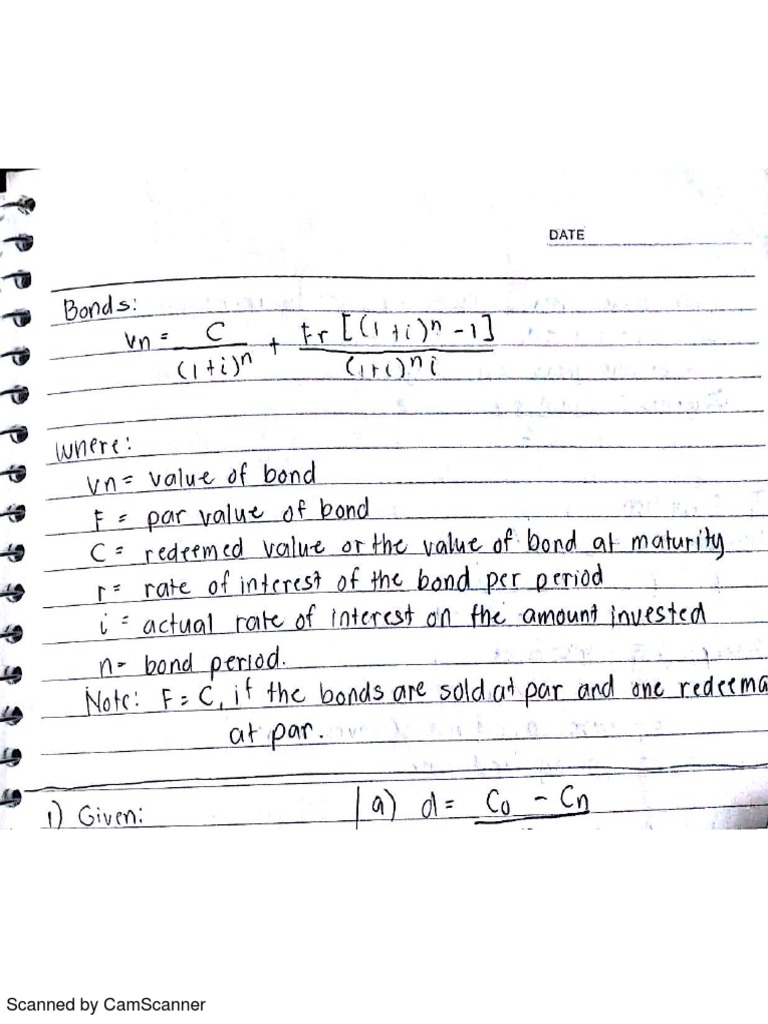 DATE
Bonds:
Vn = C/(1+i)^n + Fr[(1+i)^n -1]/(1+i)^n i
where:
Vn = value of bond
F = par value of bond
C = redeemed value or the value of bond at maturity
r = rate of interest of the bond per period
i = actual rate of interest on the amount invested
n = bond period.
Note: F = C, if the bonds are sold at par and one redeema
at par.
1) Given:
a) d = Co - Cn
Scanned by CamScanner